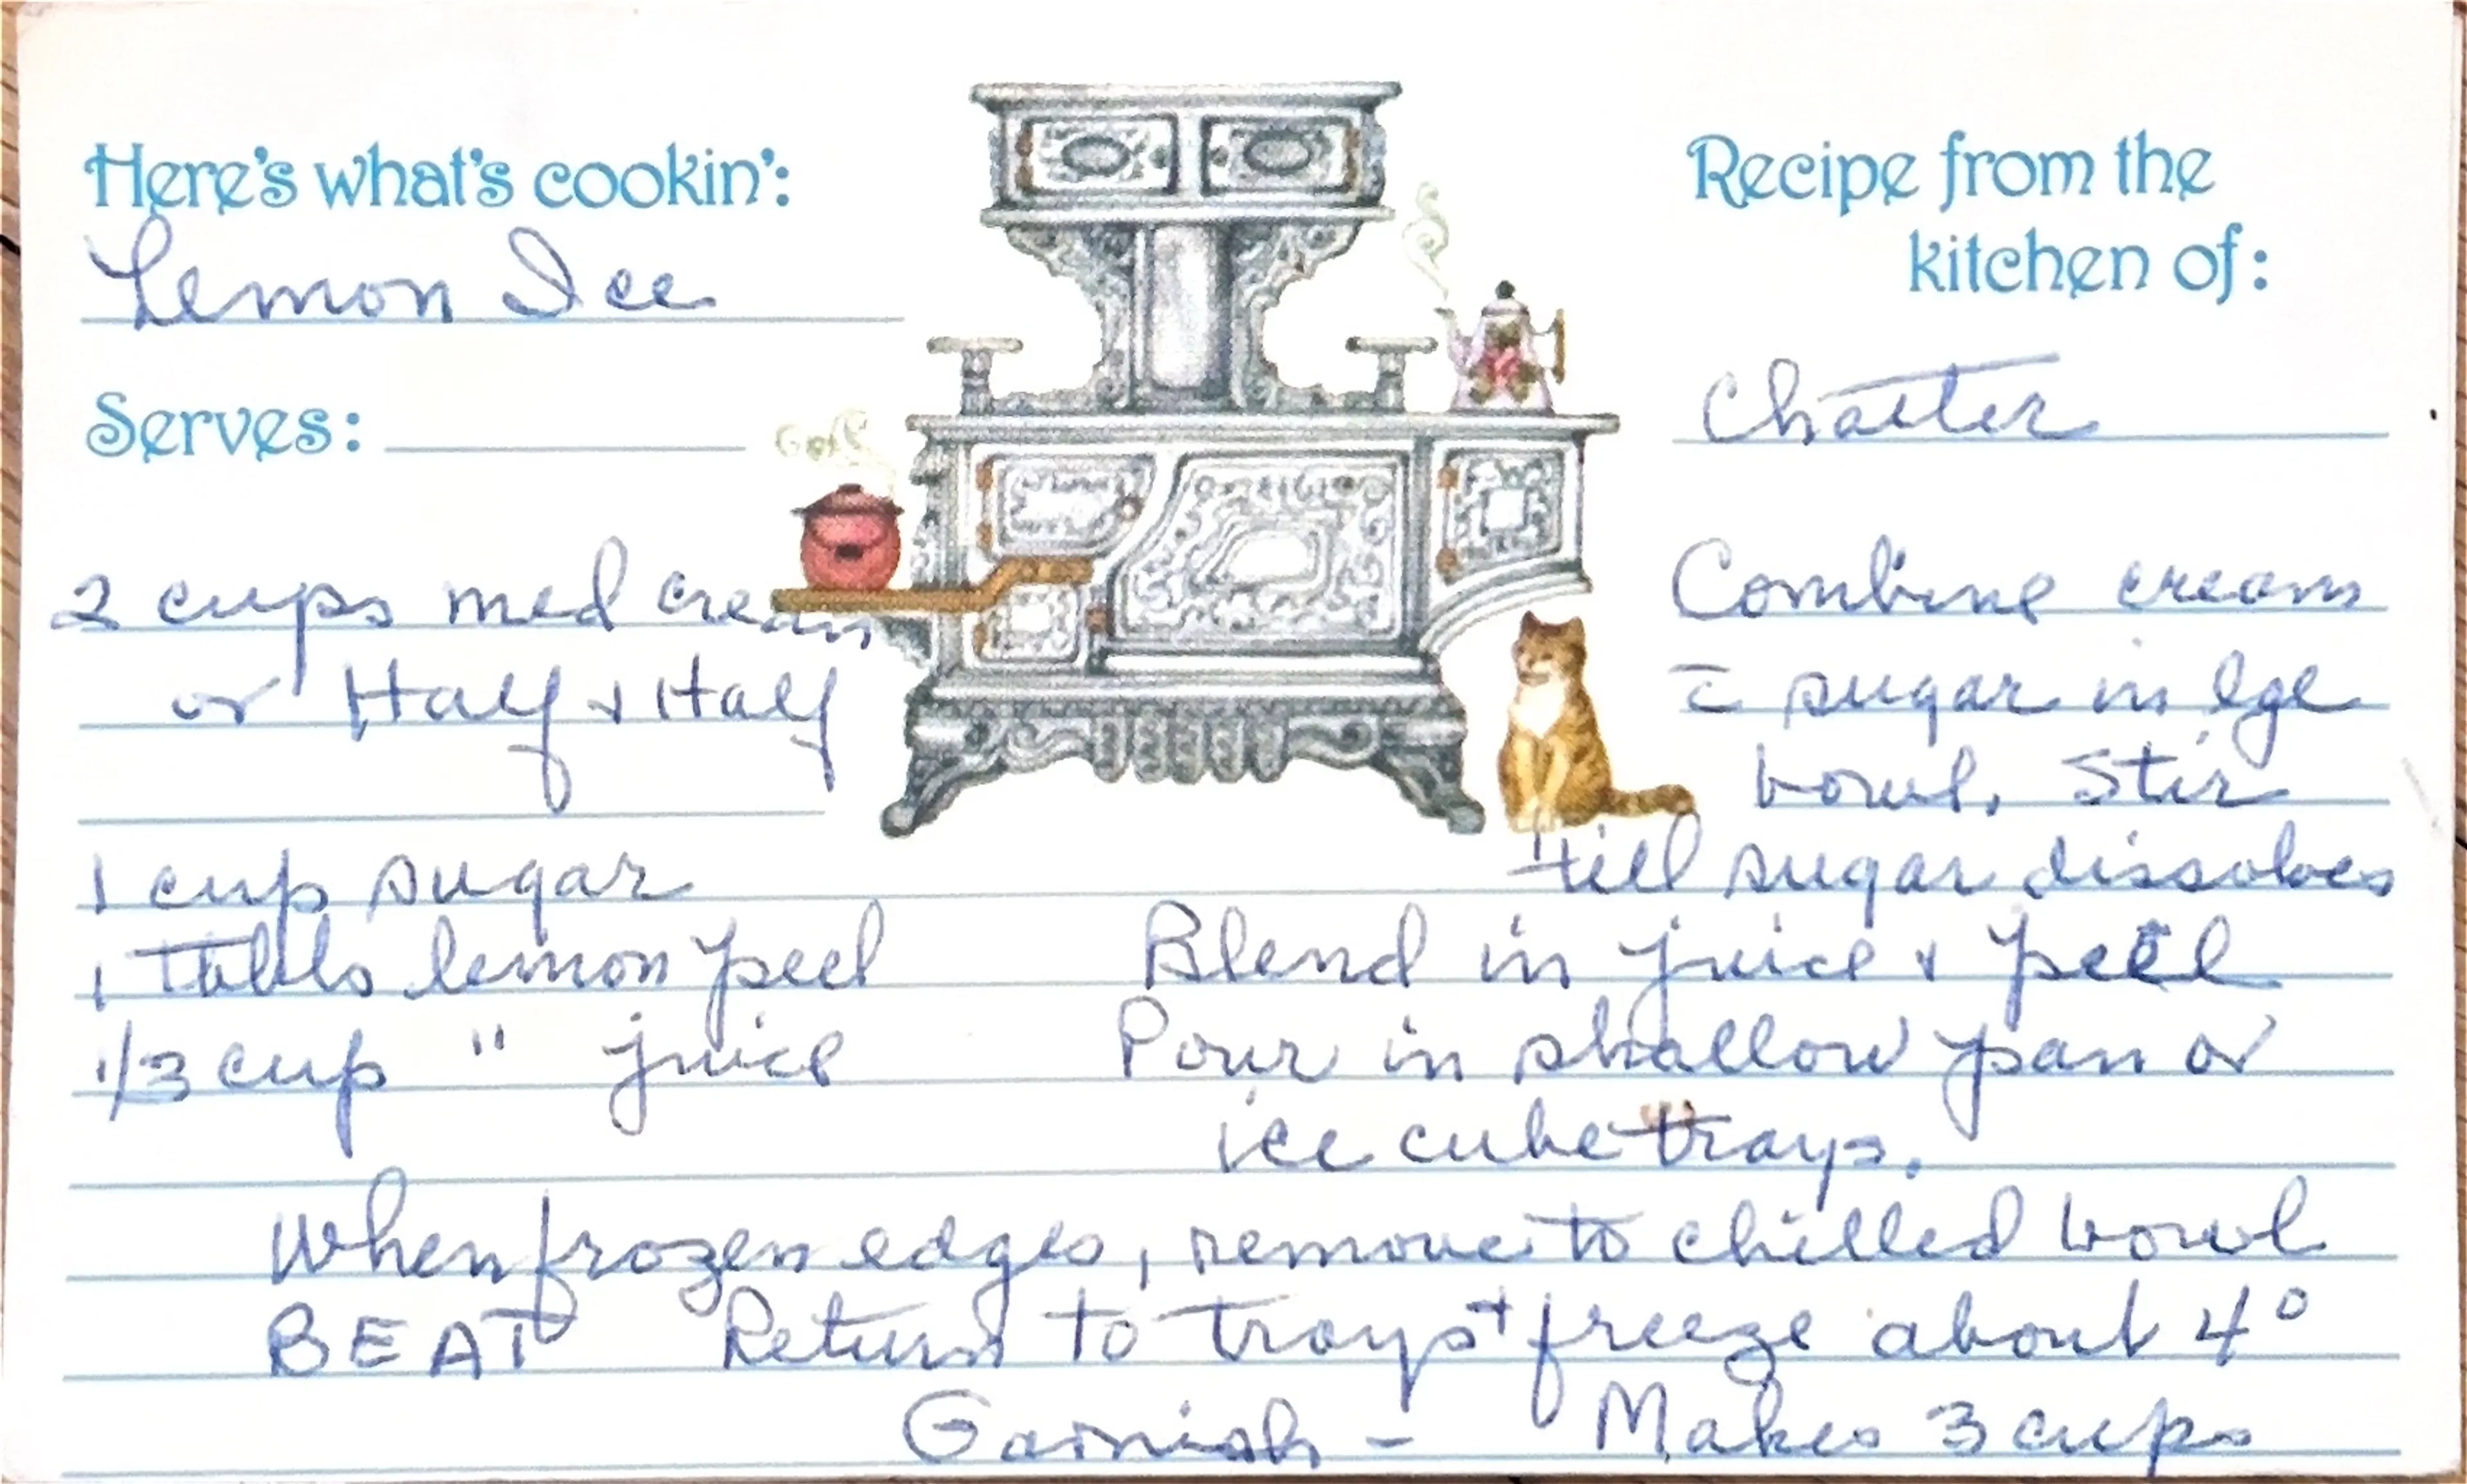 Here's what's cookin':
Lemon Ice
Serves:
Recipe from the
kitchen of:
Chatter
2 cups med cream
or Half + Half
1 cup sugar
1 Tabls lemon peel
1/3 cup " juice
Combine cream
c̄ sugar in lge
bowl. Stir
till sugar dissolves
Blend in juice + peel
Pour in shallow pan or
ice cube trays.
When frozen edges, remove to chilled bowl
BEAT Return to trays + freeze about 4°
Garnish - Makes 3 cups